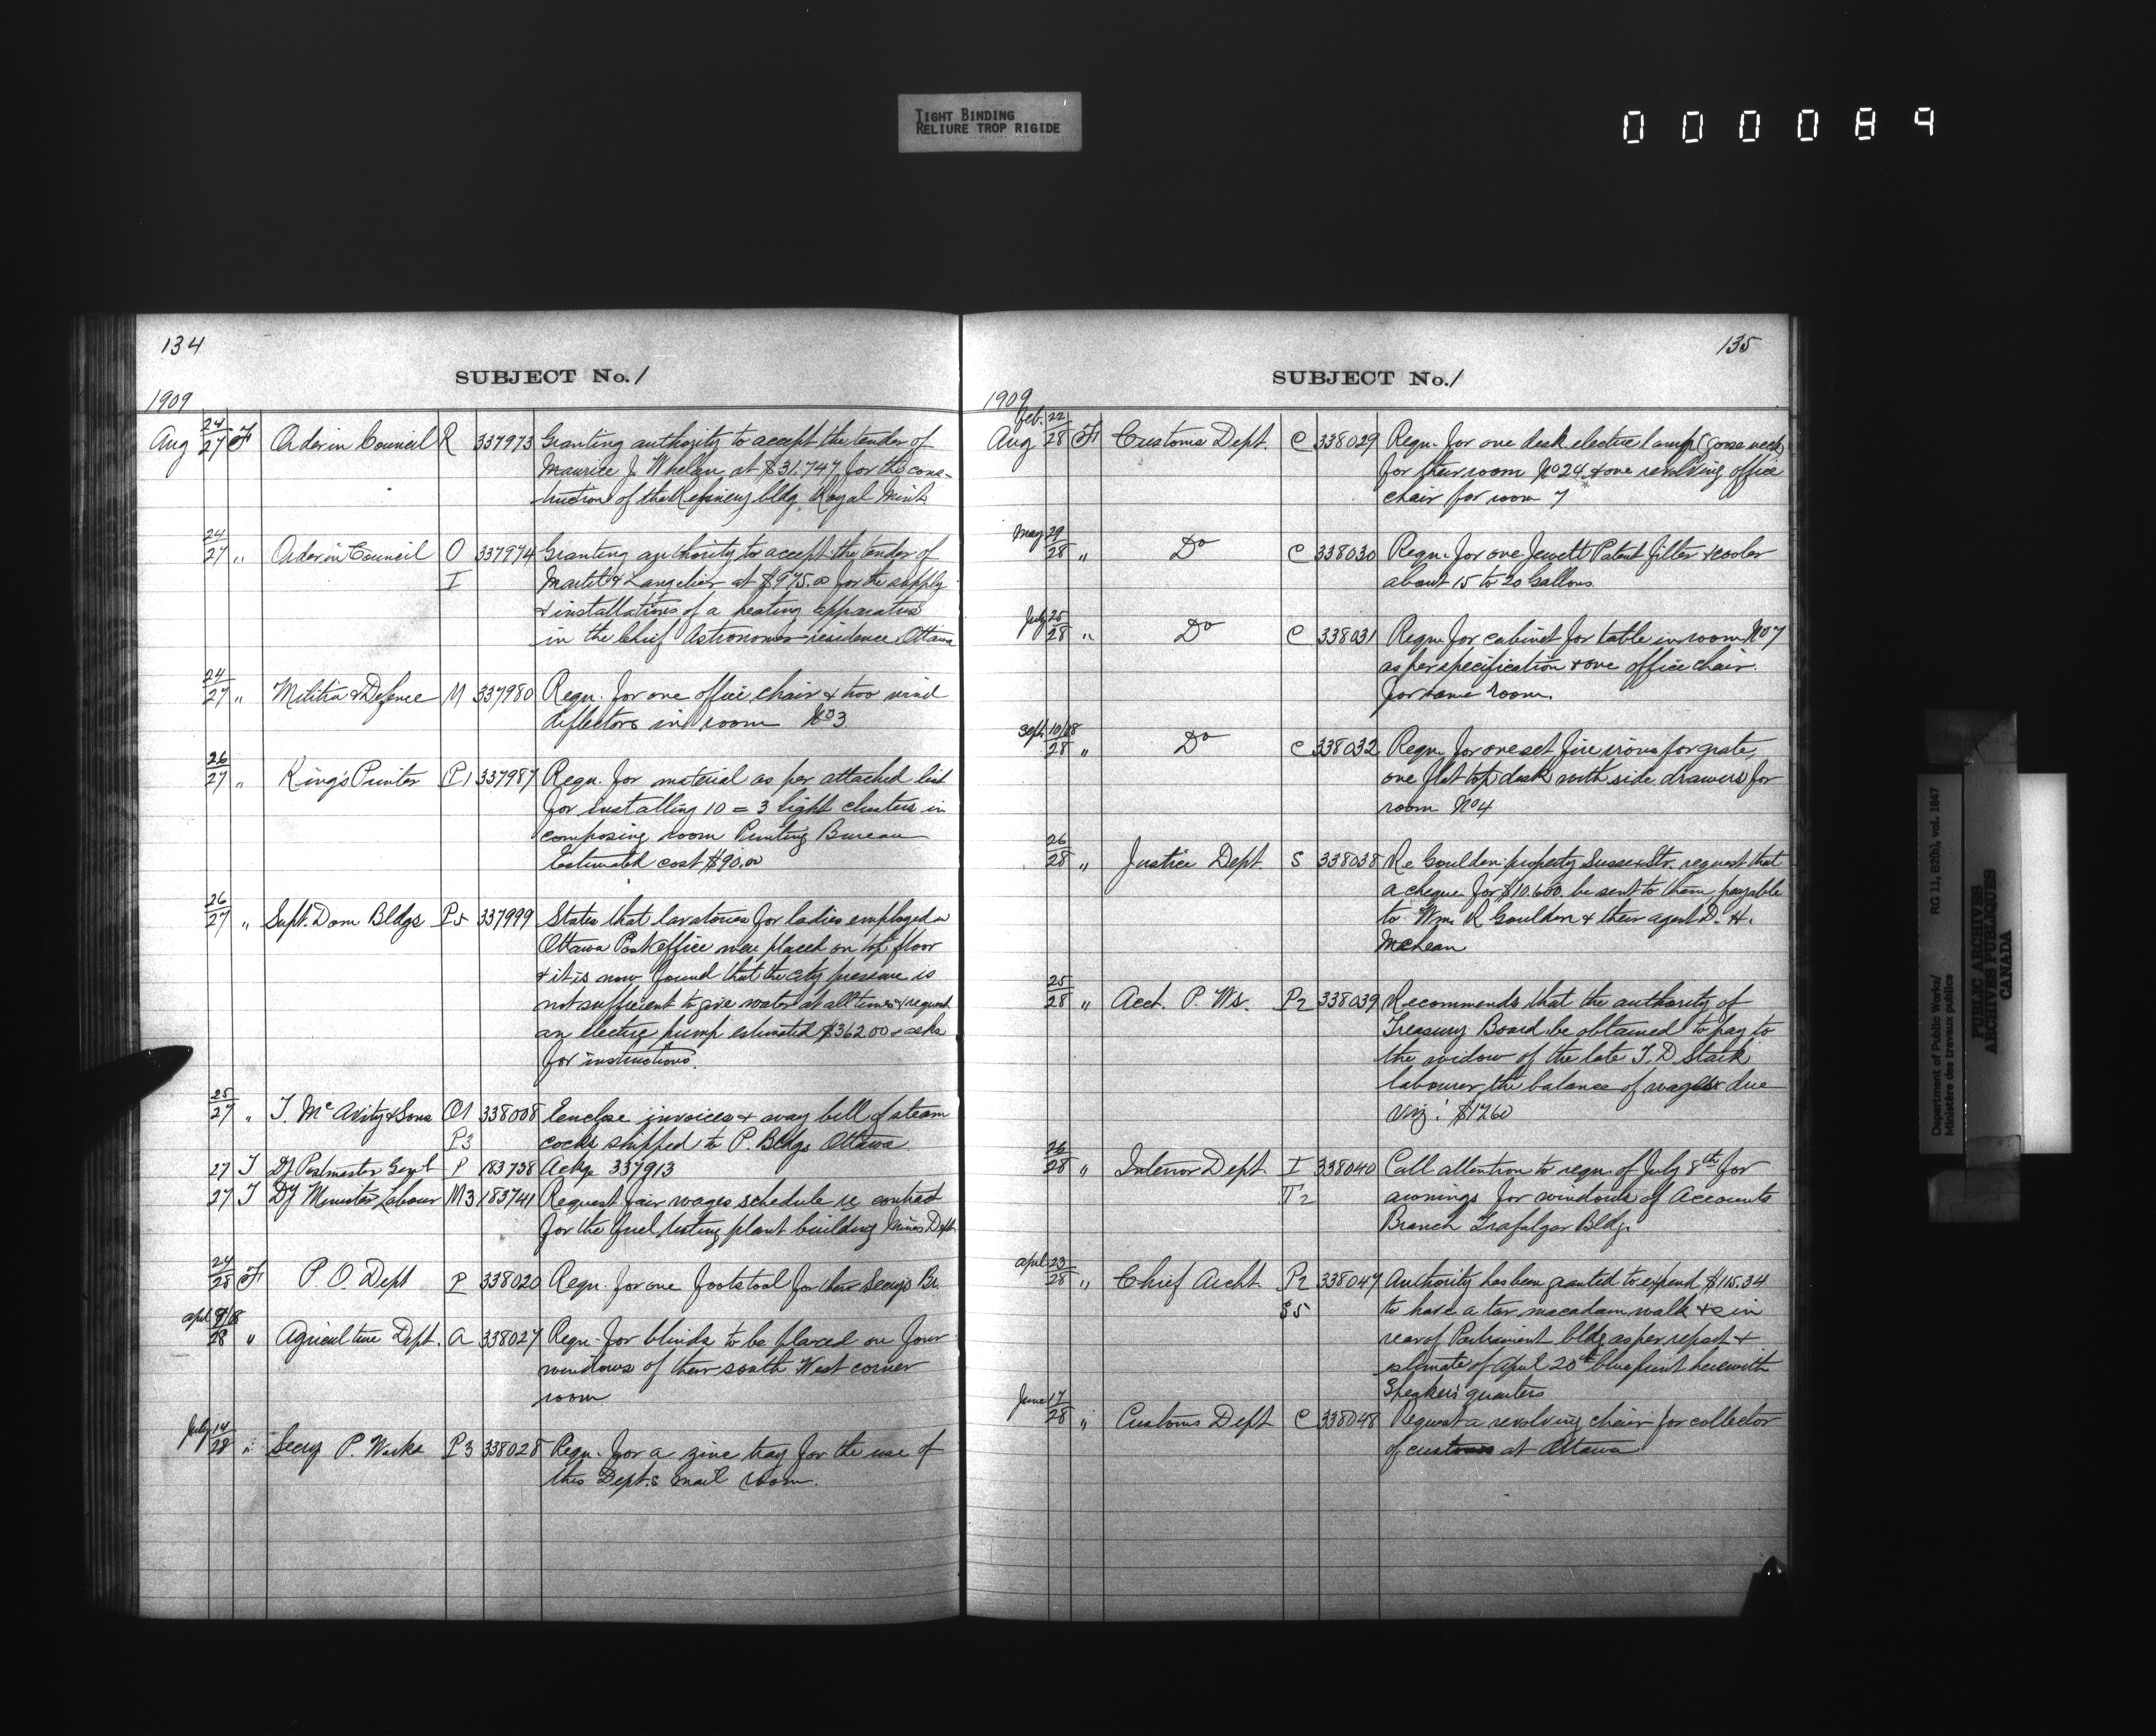 TIGHT BINDING
RELIURE TROP RIGIDE
000089
134
SUBJECT No. 1
1909
Aug 24/27 F Order in Council R 337973 Granting authority to accept the tender of
Maurice J Whelan at $31.747 for the cons-
truction of the Refinery bldg. Royal Mint
24/27 " Order in Council O 337974 Granting authority to accept the tender of
I Martel & Langelier at $975.00 for the supply
& installations of a heating apparatus
in the Chief Astronomer residence Ottawa
24/27 " Militia & Defence M 337980 Reqn. for one office chair & two wind
deflectors in room No 3
26/27 " King's Printer P1 337987 Reqn. for material as per attached list
for installing 10 = 3 light clusters in
composing room Printing Bureau
Estimated cost $90.00
26/27 " Supt. Dom Bldgs P5 337999 States that lavatories for ladies employed in
Ottawa Post office were placed on top floor
& it is now found that the city pressure is
not sufficient to give water at all times & request
an electric pump estimated $362.00 & asks
for instructions.
25/27 " T. McAvity & Sons O1 338008 Enclose invoices & way bill of steam
P3 cocks shipped to P. Bldgs Ottawa.
27 T Dy Postmaster Genl P 183738 Ackg. 337913
27 T Dy Minister Labour M3 183741 Request fair wages schedule re contract
for the fuel testing plant building Mines Dept
24/28 F P. O. Dept P 338020 Reqn. for one footstool for their Secys Br.
April 9/08
28 " Agriculture Dept. A 338027 Reqn. for blinds to be placed on four
windows of their south West corner
room
July 14/28 " Secy P. Works P3 338028 Reqn. for a zinc tray for the use of
this Dept.s mail room.
135
SUBJECT No. 1
1909
Feb. 22
Aug 28 F Customs Dept. C 338029 Reqn. for one desk electric lamp (goose neck)
for their room No 24 & one revolving office
chair for room 7
May 29/28 " Do C 338030 Reqn. for one Jewett Patent filter & cooler
about 15 to 20 Gallons
July 26/28 " Do C 338031 Reqn. for cabinet for table in room No 7
as per specification & one office chair
for same room.
Sept. 10/08
28 " Do C 338032 Reqn. for one set fire irons for grate,
one flat top desk with side drawers for
room No 4
26/28 " Justice Dept. S 338038 Re Goulden property Sussex Str. request that
a cheque for $10.600 be sent to them payable
to Wm. R Goulden & their agent D. H.
McLean
25/28 " Acct. P. Ws. P2 338039 Recommends that the authority of
Treasury Board be obtained to pay to
the widow of the late T. D. Stark
labourer the balance of wages due
viz: $17.60
26/28 " Interior Dept I 338040 Call attention to reqn. of July 8th for
T2 awnings for windows of Accounts
Branch Trafalgar Bldg.
April 23/28 " Chief Archt P2 338047 Authority has been granted to expend $115.34
S5 to have a tar macadam walk &c in
rear of Parliament bldg as per report &
estimate of April 20th blue print herewith
Speaker's quarters
June 17/28 " Customs Dept C 338048 Request a revolving chair for collector
of customs at Ottawa
Department of Public Works/ RG 11, B2(b), vol. 1847
Ministère des travaux publics
PUBLIC ARCHIVES
ARCHIVES PUBLIQUES
CANADA